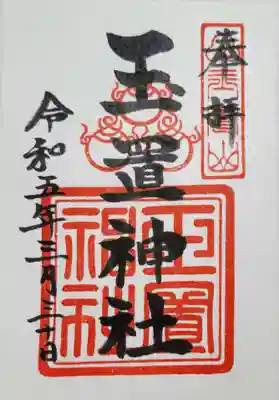 奉拝
玉置神社
令和五年三月三十日
玉置
神社